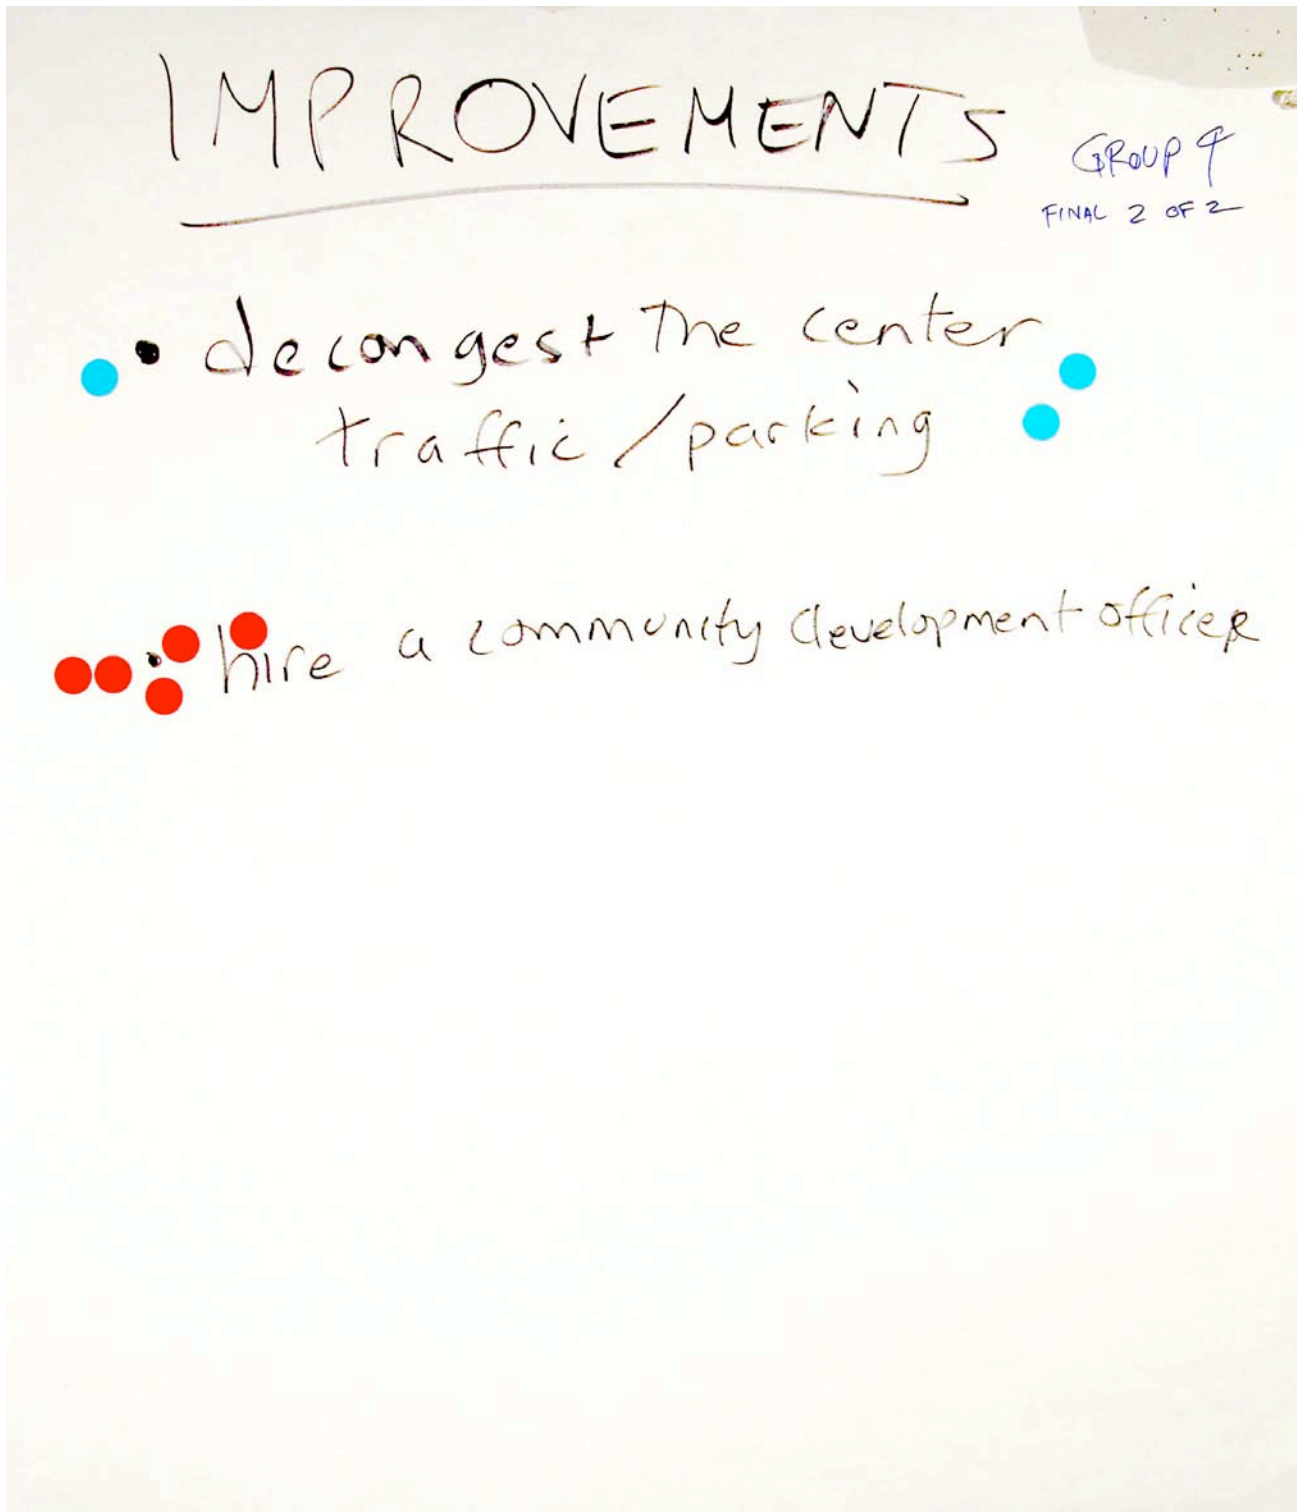 IMPROVEMENTS
GROUP 4
FINAL 2 OF 2
• decongest the center
traffic/parking
• hire a community development officer